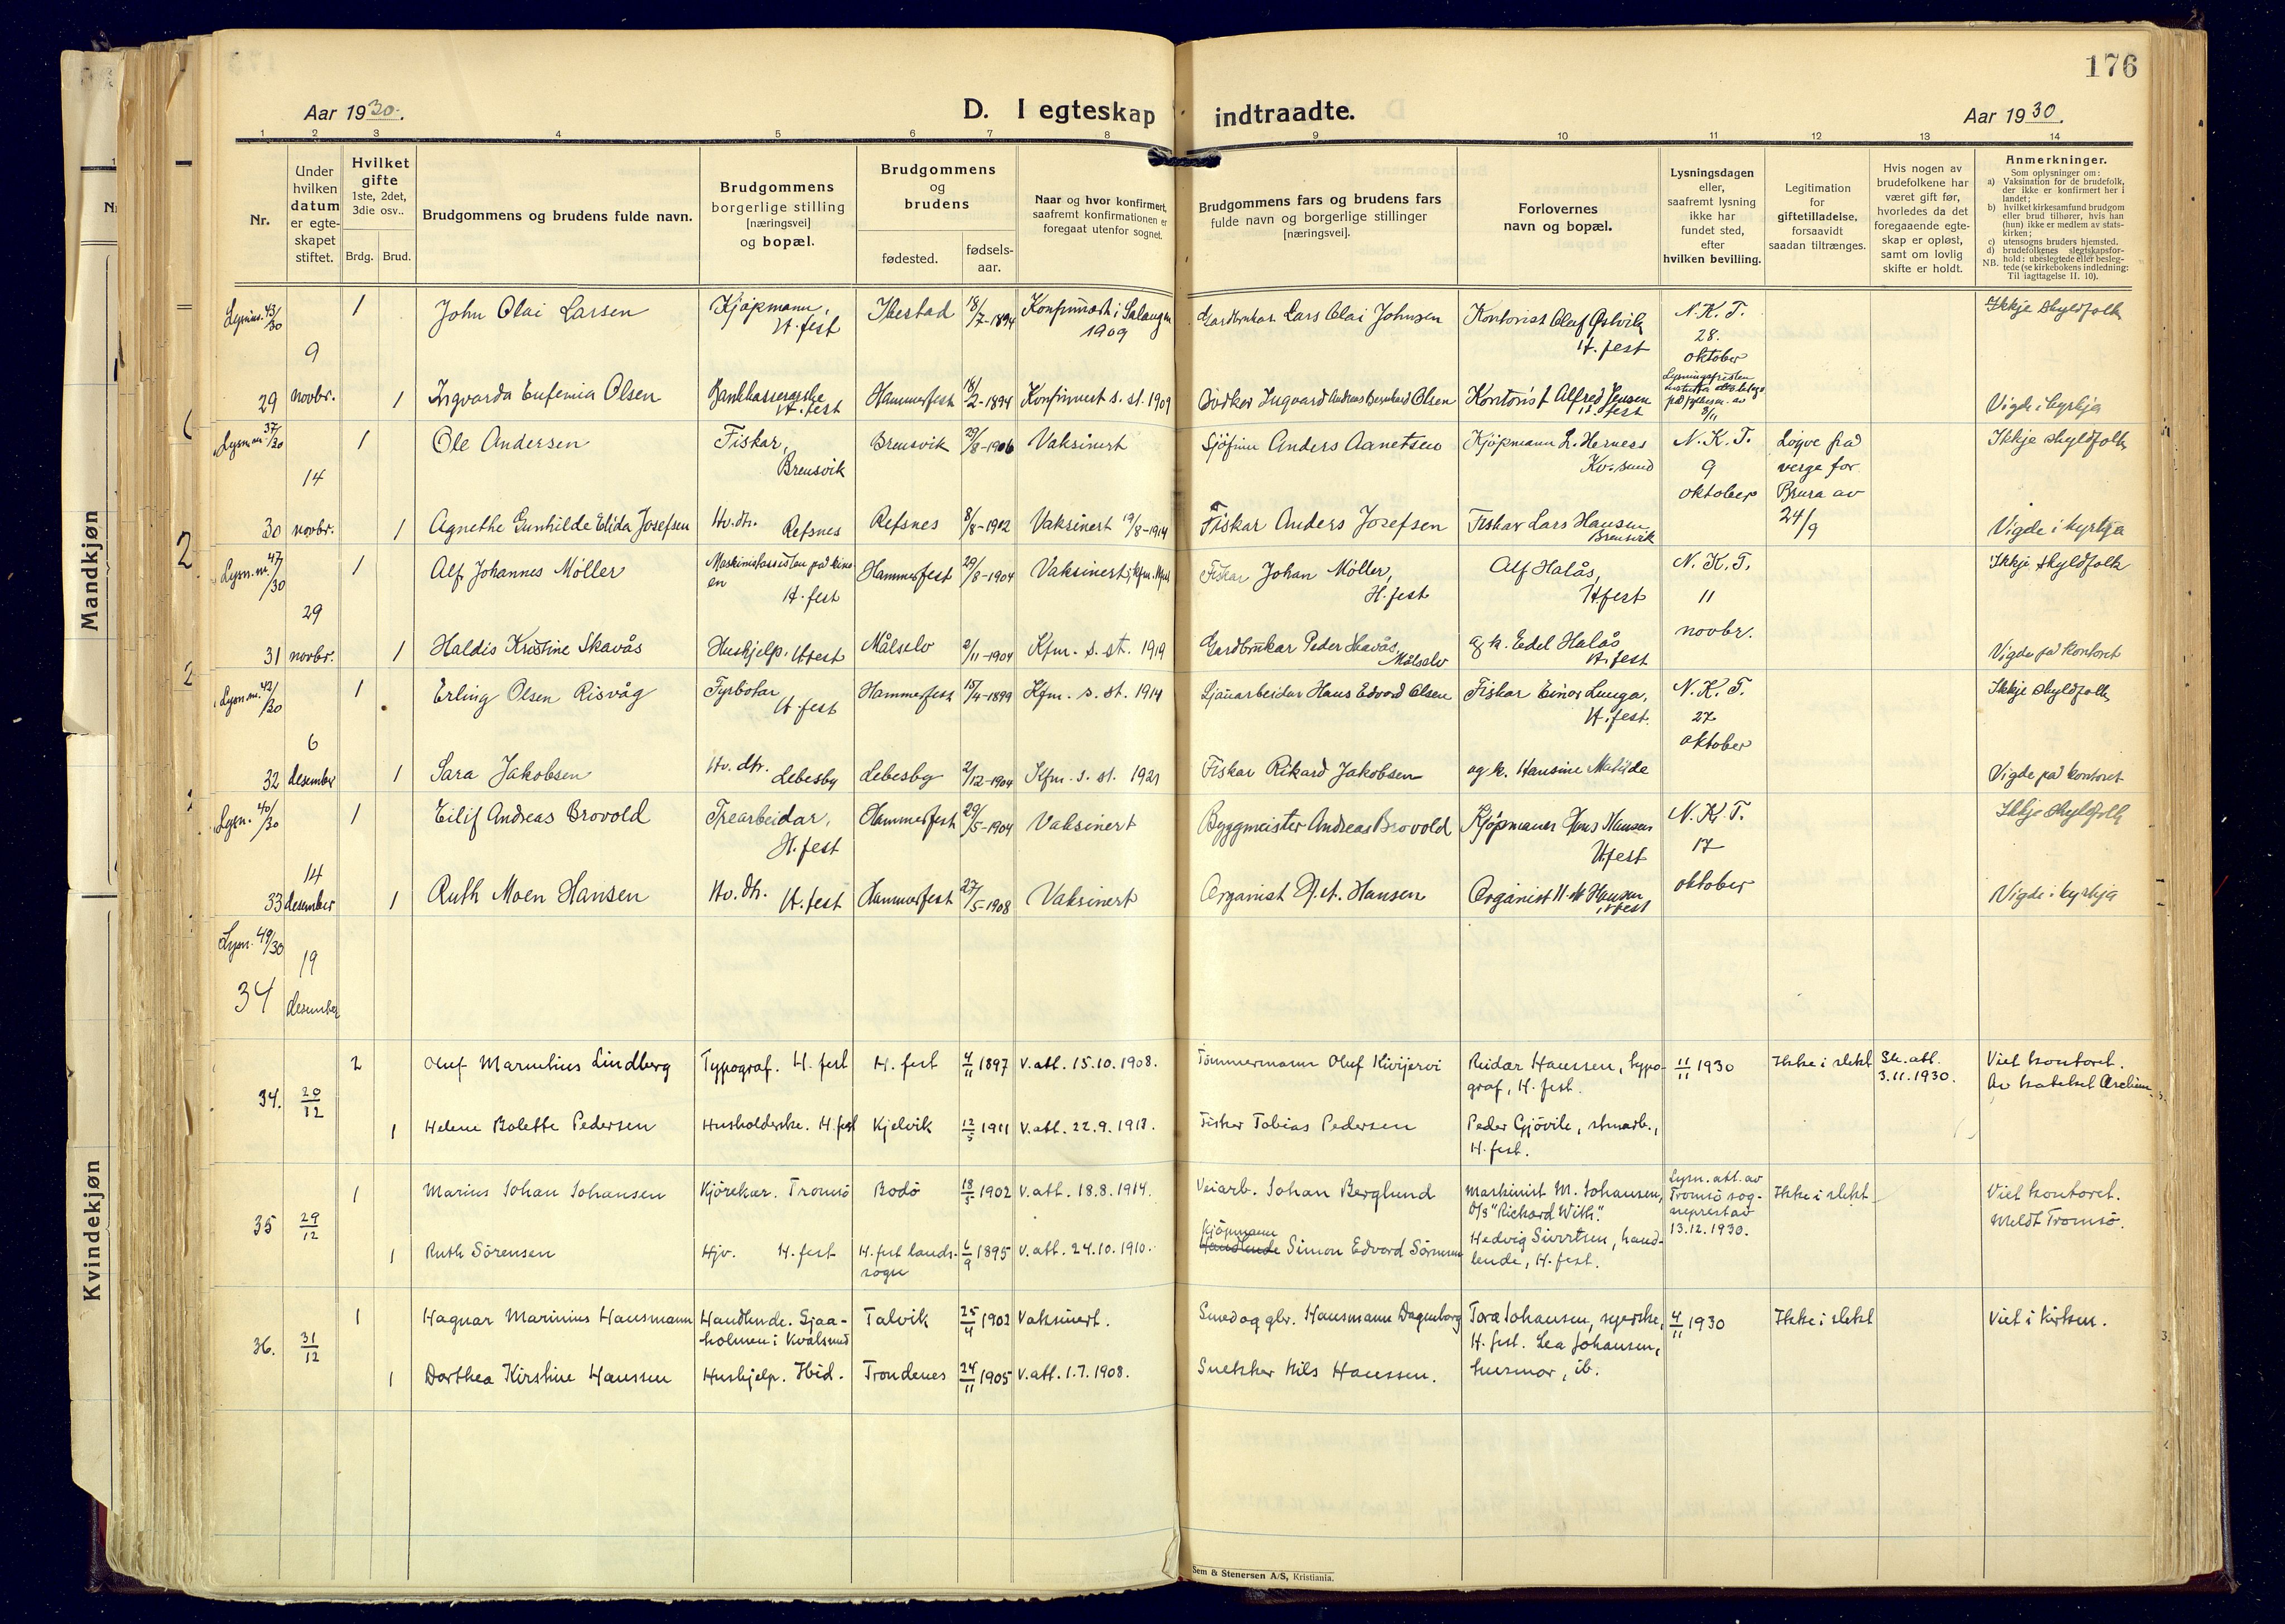 176
Aar 1930.
D. I egteskap indtraadte.
Aar 1930.
1 2 3 4 5 6 7 8 9 10 11 12 13 14
Nr.
Under hvilken datum er egteskapet stiftet.
Hvilket gifte 1ste, 2det, 3die osv..
Brdg. Brud.
Brudgommens og brudens fulde navn.
Brudgommens borgerlige stilling [næringsvei] og bopæl.
Brudgommens og brudens
fødested.
fødselsaar.
Naar og hvor konfirmert, saafremt konfirmationen er foregaat utenfor sognet.
Brudgommens fars og brudens fars fulde navn og borgerlige stillinger [næringsvei].
Forlovernes navn og bopæl.
Lysningsdagen eller, saafremt lysning ikke har fundet sted, efter hvilken bevilling.
Legitimation for giftetilladelse, forsaavidt saadan tiltrænges.
Hvis nogen av brudefolkene har været gift før, hvorledes da det foregaaende egteskap er opløst, samt om lovlig skifte er holdt.
Anmerkninger.
Som oplysninger om:
a) Vaksination for de brudefolk, der ikke er konfirmert her i landet;
b) hvilket kirkesamfund brudgom eller brud tilhører, hvis han (hun) ikke er medlem av statskirken;
c) utensogns bruders hjemsted.
d) brudefolkenes slegtskapsforhold: ubeslegtede eller beslegtede (se kirkebokens indledning: Til iagttagelse II, 10).
NB.
43/30 1 John Olai Larsen Kjøpmann, H.fest Ibestad 18/7-1894 Konfirmert i Salangen 1909 Gardbrukar Lars Olai Johnsen Kontorist Olaf Østvik H.fest N.K.T. 28. oktober Ikkje skyldfolk
29 9 novbr. 1 Ingvarda Eufemia Olsen H.fest Hammerfest 18/2-1894 Konfirmert s. st. 1909 Bödker Ingvard Andreas Bernhard Olsen Kontorist Alfred Jensen H.fest 8/11 Vigde i kyrkja
Lysn.nr. 37/30 1 Ole Andersen Fiskar, Brensvik Brensvik 29/8-1906 Vaksinert Sjöfinn Anders Aanetsen Kjøpmann L. Herness Kv.sund N.K.T. 9 oktober Løyve frå verge for Brura av 24/9 Ikkje skyldfolk
30 14 novbr. 1 Agnethe Gunhilde Elida Josefsen Hv.dtr. Refsnes Refsnes 8/8-1902 Vaksinert 19/8-1914 Fiskar Anders Josefsen Fiskar Lars Hansen Brensvik Vigde i kyrkja
Lysn.nr. 47/30 1 Alf Johannes Möller Maskinistassistent på kinoen H.fest Hammerfest 29/8-1904 Vaksinert Fiskar Johan Möller, H.fest Alf Halås, H.fest N.K.T. 11 novbr. Ikkje skyldfolk
31 29 novbr. 1 Haldis Kristine Skavås Hushjelp. H.fest Målselv 2/11-1904 Kfm. s. st. 1919 Gardbrukar Peder Skavås, Målselv og k. Edel Halås H.fest Vigde på kontoret
Lysn.nr. 42/30 1 Erling Olsen Risvåg Fyrbøtar H.fest Hammerfest 15/4-1899 Kfm. s. st. 1914 Sjauarbeidar Hans Edvard Olsen Fiskar Einar Lunga, H.fest. N.K.T. 27 oktober Ikkje skyldfolk
32 6 desember 1 Sara Jakobsen Hv.dtr. Lebesby Lebesby 2/12-1904 Kfm. s. st. 1921 Fiskar Rikard Jakobsen og k. Hansine Matilde Vigde på kontoret
Lysn. 40/30 1 Eilif Andreas Brovold Trearbeidar, H.fest Hammerfest 29/5-1904 Vaksinert Byggmeister Andreas Brovold Kjøpmann Hans Hansen H.fest N.K.T. 17 oktober Ikkje skyldfolk
33 14 desember 1 Ruth Moen Hansen Hv.dtr. H.fest Hammerfest 27/5-1908 Vaksinert Organist H.M. Hansen Organist H.M. Hansen H.fest Vigde i kyrkja
Lysn. 49/30 19
34 desember
34. 20/12 2 Oluf Marnelius Lindberg Typograf. H.fest H.fest 4/11 1897 V.att. 15.10.1908. Tömmermann Oluf Kivijervi Reidar Hanssen, typograf, H.fest. 11/11 1930 Ikke i slekt Sk.att. 3.11.1930. Viet kontoret.
1 Helene Bolette Pedersen Husholderske. H.fest Kjelvik 12/5 1911 V.att. 22.9.1913. Fisker Tobias Pedersen Peder Gjövik, H.fest.
35 29/12 1 Marius Johan Johansen Kjörekar. Tromsö Bodö 18/5 1902 V.att. 18.8.1914. Veiarb. Johan Berglund Maskinist M. Johansen, D/S "Rickard With". Lysn.att. av Tromsö sogneprest av 13.12.1930. Ikke i slekt Viet kontoret. Meldt Tromsö.
1 Ruth Sörensen Hjv. H.fest H.fest landssogn 6/9 1895 V.att. 24.10.1910. Kjöpmann Handlende Simon Edvard Sörensen Hedvig Sivertsen, handlende, H.fest.
36. 31/12 1 Hagnar Marinius Hansmann Handlende. Sjaaholmen i Kvalsund Talvik 25/4 1902 Vaksinert. Smed og gbr. Hansmann Dagenborg Tora Johansen, syerske, H.fest. Lea Johansen, husmor, ib. 4/11 1930 Ikke i slekt Viet i Kirken.
1 Dorthea Kirstine Hanssen Hushjelp. Ibid. Trondenes 24/11 1905 V.att. 1.7.1908. Snekker Nils Hanssen.
Sem & Stenersen A/S, Kristiania.
Mandkjøn
Kvindekjøn